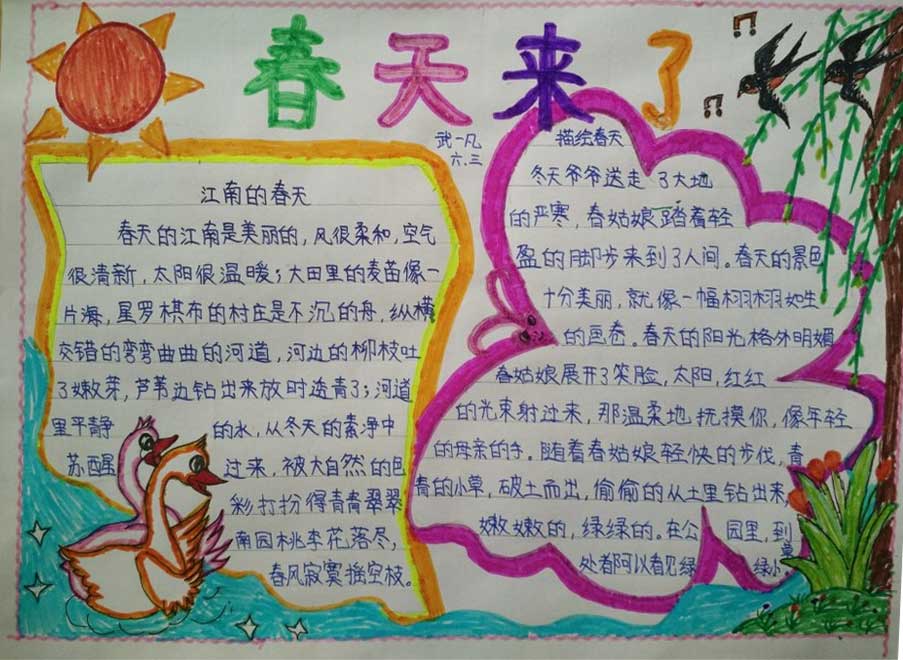 春天来了
武一凡
六.三
江南的春天
春天的江南是美丽的，风很柔和，空气
很清新，太阳很温暖；大田里的麦苗像一
片海，星罗棋布的村庄是不沉的舟，纵横
交错的弯弯曲曲的河道，河边的柳枝吐
了嫩芽，芦苇边钻出来放时透青了；河道
里平静的水，从冬天的素净中
苏醒过来，被大自然的色
彩打扮得青青翠翠
南园桃李花落尽，
春风寂寞摇空枝。
描绘春天
冬天爷爷送走了大地
的严寒，春姑娘踏着轻
盈的脚步来到了人间。春天的景色
十分美丽，就像一幅栩栩如生
的画卷。春天的阳光格外明媚
春姑娘展开了笑脸，太阳，红红
的光束射过来，那温柔地抚摸你，像年轻
的母亲的手。随着春姑娘轻快的步伐，青
青的小草，破土而出，偷偷的从土里钻出来，
嫩嫩的，绿绿的。在公园里，到
处都可以看见绿绿小草